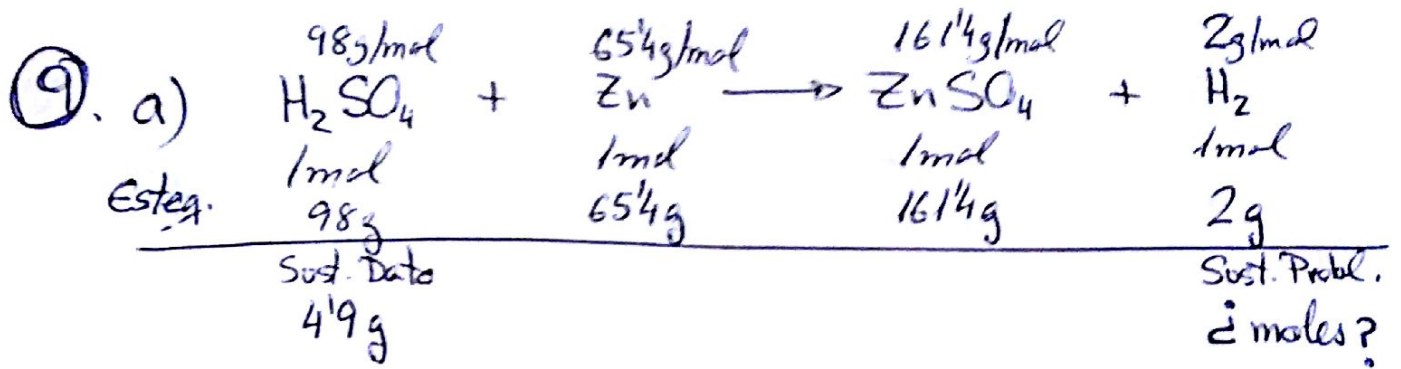 98g/mol 65'4g/mol 161'4g/mol 2g/mol
9. a) H₂SO₄ + Zn → ZnSO₄ + H₂
1mol 1mol 1mol 1mol
Esteq. 98g 65'4g 161'4g 2g
Sust. Dato Sust. Probl.
4'9g ¿moles?